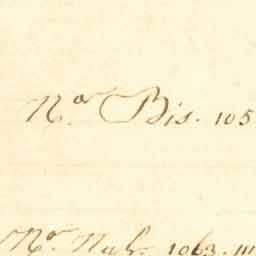 N.º Bis. 105
N.º Nah. 1063. m